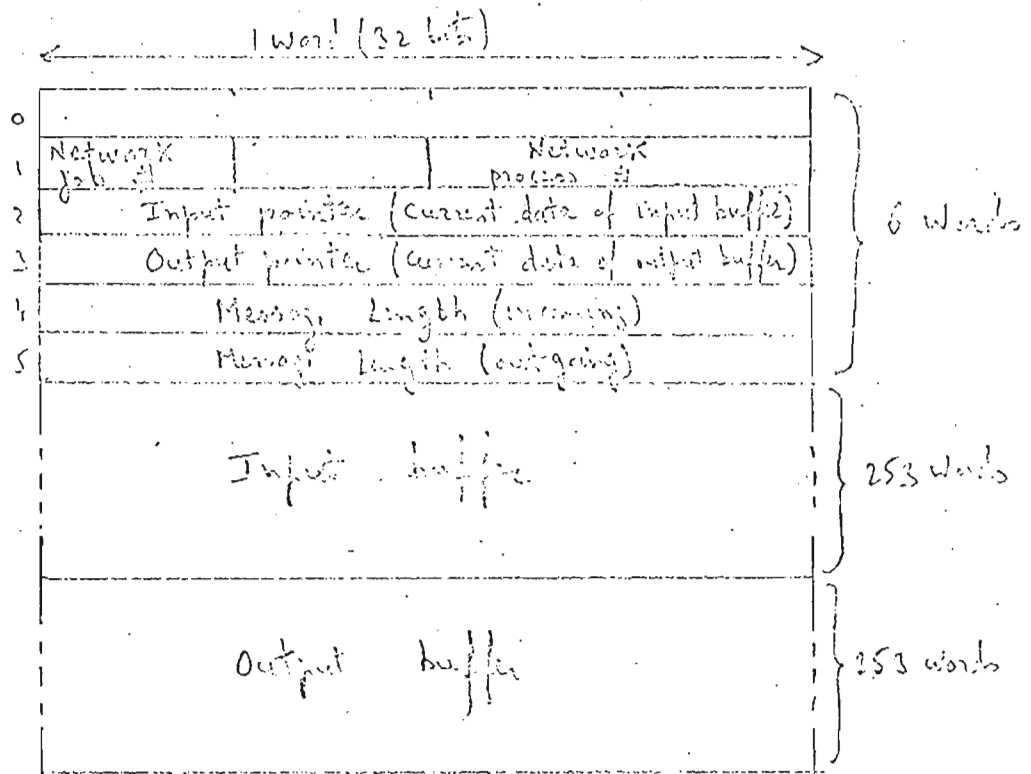 1 word (32 bits)
0
1 Network job # Network process #
2 Input pointer (current data of input buffer)
3 Output pointer (current data of output buffer)
4 Message Length (incoming)
5 Message Length (out-going)
6 words
Input buffer
253 words
Output buffer
253 words